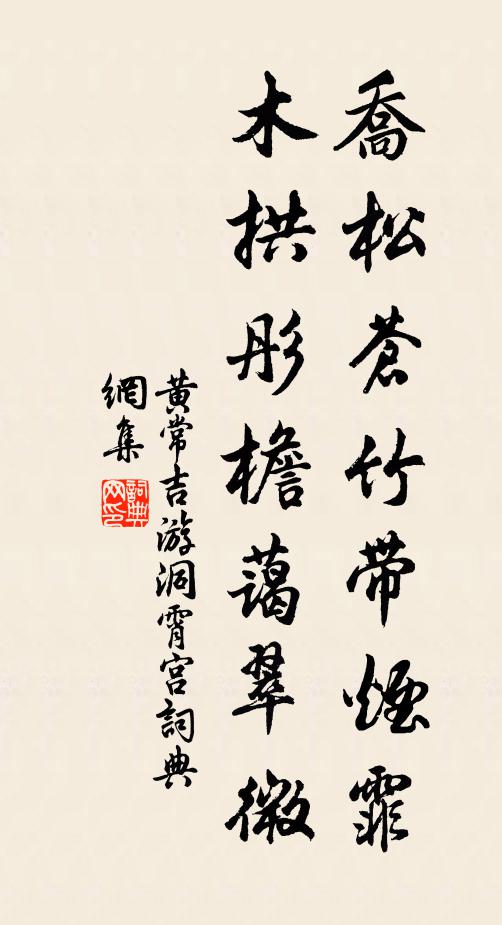 喬松蒼竹帶煙霏
木拱彤檐藹翠微
黄常吉游洞霄宮詞典
網集
詞典
网印